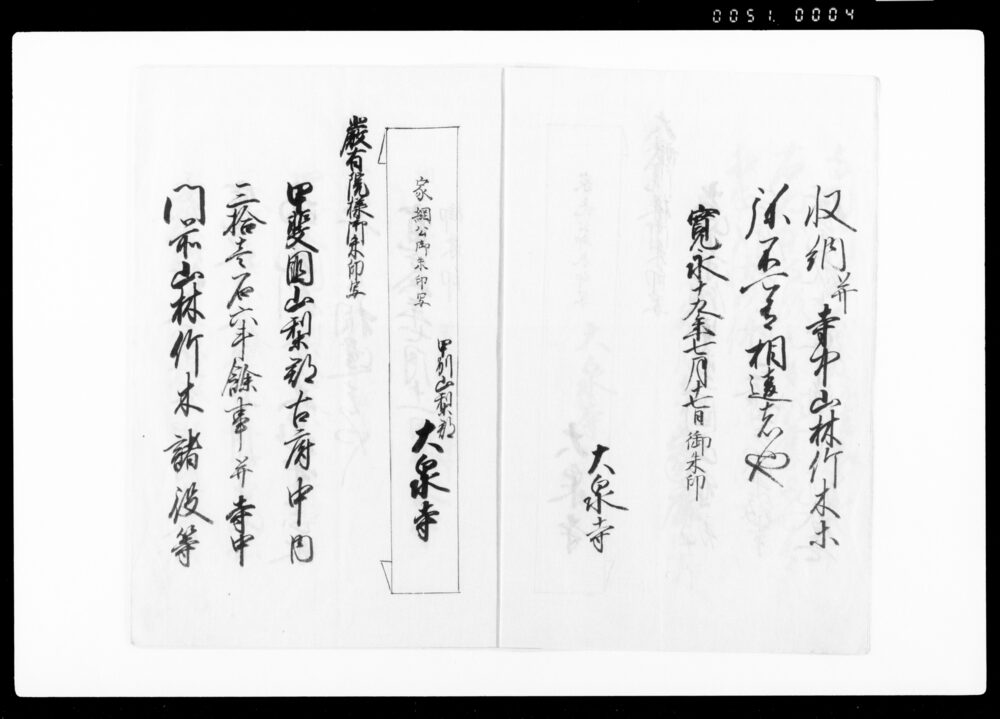 0051. 0004
収納并寺中山林竹木等
弥不可有相違者也
寛永十九年七月十七日御朱印
大泉寺
家綱公御朱印写
甲州山梨郡
大泉寺
厳有院様御朱印写
甲斐国山梨郡古府中内
三拾壱石六斗餘事并寺中
門前山林竹木諸役等